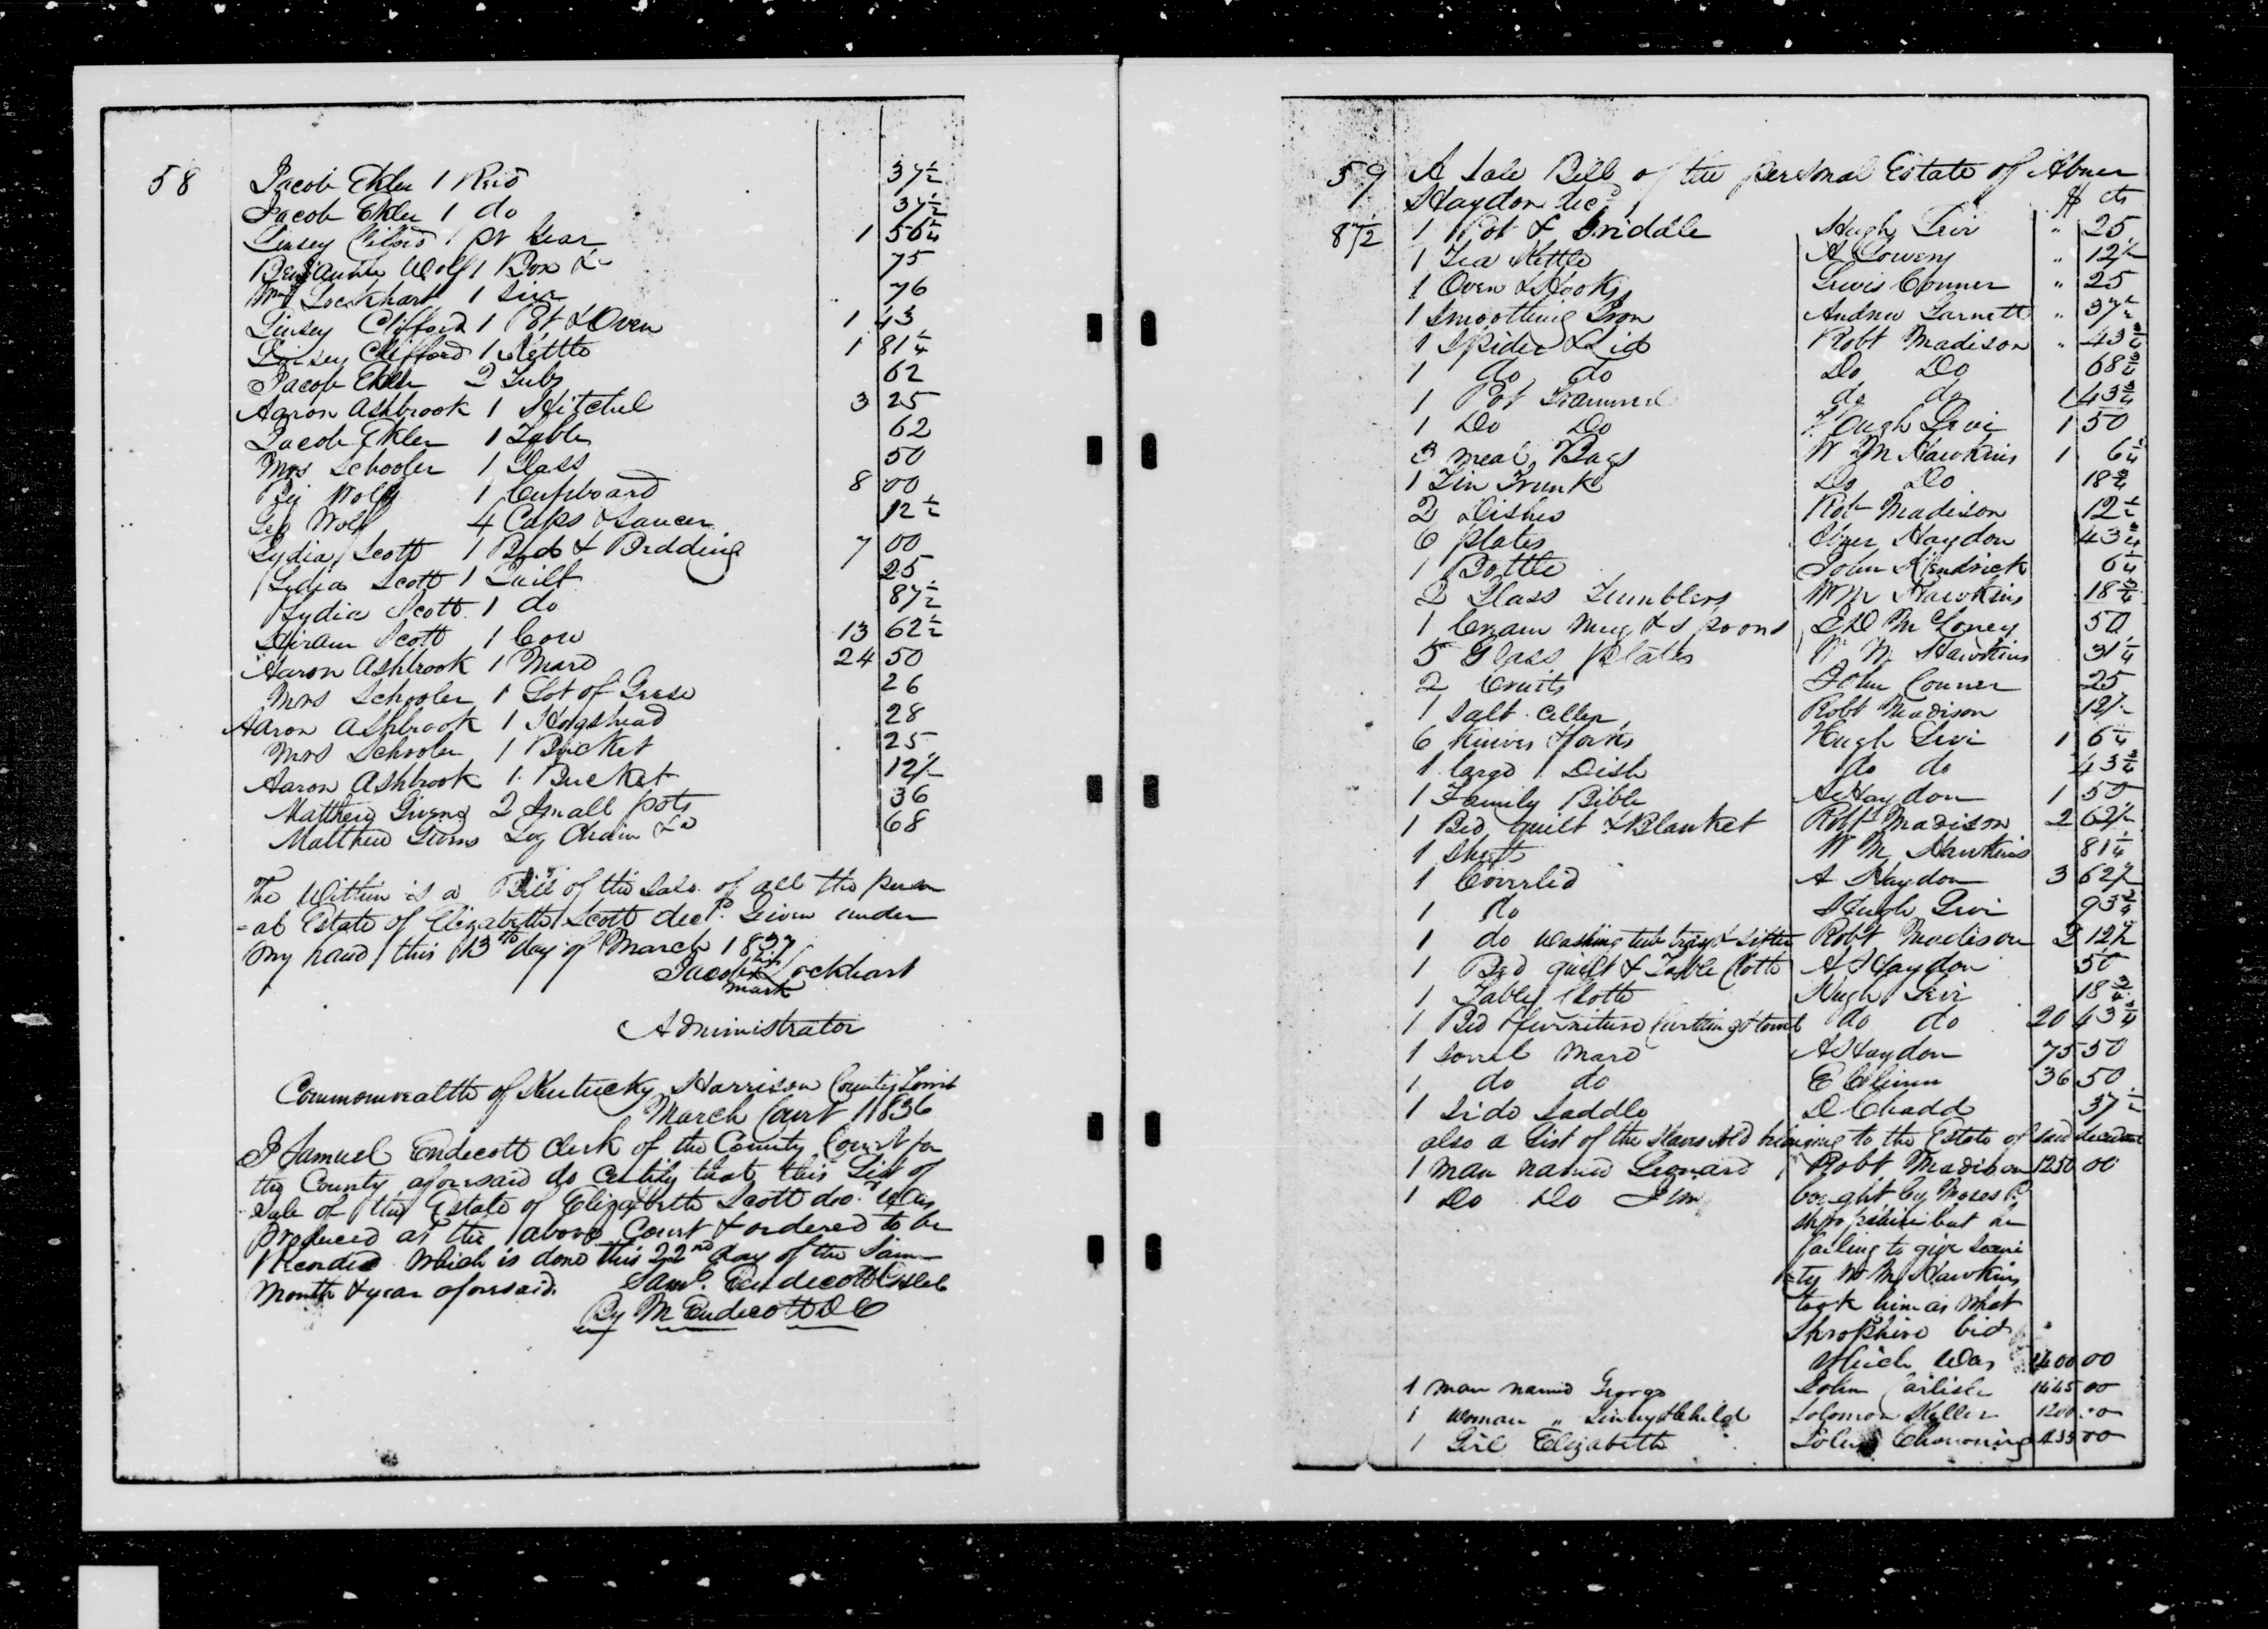 58
Jacob Ekler 1 Reid 37½
Jacob Ekler 1 do 37½
Linsey Cliford 1 pr Gear 1 56¼
Benjamin Wolf 1 Box &c 75
Wm Lockhart 1 76
Linsey Clifford 1 Pot & Oven 1 43
Linsey Clifford 1 Kettle 1 81¼
Jacob Ekler 2 Tubs 62
Aaron Ashbrook 1 Hitchel 3 25
Jacob Ekler 1 Table 62
Mrs Schooler 1 Glass 50
Wolf 1 Cupboard 8 00
Geo Wolf 4 Cups & Saucer 12½
Lydia Scott 1 Bed & Bedding 7 00
Lydia Scott 1 Quilt 25
Lydia Scott 1 do 87½
Hiram Scott 1 Cow 13 62½
Aaron Ashbrook 1 Mare 24 50
Mrs Schooler 1 Lot of Geese 26
Aaron Ashbrook 1 Hogshead 28
Mrs Schooler 1 Bucket 25
Aaron Ashbrook 1 Bucket 12½
Matthew Givens 2 Small pots 36
Matthew Givens Log Chain &c 68
The Within is a Bill of the Sale of all the person
-al Estate of Elizabeth Scott decd. Given under
my hand this 13th day of March 1837
Jacob Lockhart
mark
Administrator
Commonwealth of Kentucky Harrison County Towit
March Court 1836
I Samuel Endecott Clerk of the County Court for
the County aforesaid do Certify that this List of
Sale of the Estate of Elizabeth Scott decd. was
produced at the above Court & ordered to be
Recorded Which is done this 22nd day of the Same
Month & year aforesaid. Saml. Endecott
By M Endecott DC
59 A Sale Bill of the personal Estate of Abner
Haydon decd $ cts
87½ 1 Pot & Griddle Hugh Levi " 25
1 Tea Kettle A Lowery " 12½
1 Oven & Hooks Lewis Conner " 25
1 Smoothing Iron Andrew Garnett " 37½
1 Spider & Lid Robt Madison " 43¾
1 do do Do Do 68¾
1 Pot Trammel do do 1 43¾
1 Do Do Hugh Levi 1 50
3 meal Bags W M Hawkins 1 6¼
1 Tin Trunk Do Do 18¾
2 Dishes Robt Madison 12½
6 plates Abner Haydon 43¾
1 Bottle John Kendrick 6¼
2 Glass Tumblers W M Hawkins 18¾
1 Cream Mug & spoons McLoney 50
5 Glass Plates W M Hawkins 31¼
2 Cruits John Conner 25
1 Salt Celler Robt Madison 12½
6 Knives & forks Hugh Levi 1 6¼
1 large Dish do do 43¾
1 Family Bible A Haydon 1 50
1 Bed quilt & Blanket Robt Madison 2 62½
1 Sheet W M Hawkins 81¼
1 Coverlid A Haydon 3 62½
1 do Hugh Levi 93¾
1 do Washing tub tray & sifter Robt Madison 2 12½
1 Bed quilt & Table Cloth A Haydon 50
1 Table Cloth Hugh Levi 18¾
1 Bed & furniture Curtains & towel do do 20 43¾
1 Sorrel Mare A Haydon 75 50
1 do do E Chinn 36 50
1 Side Saddle D Chadd 37½
also a List of the Slaves Sold belonging to the Estate of said decedent
1 man named Leonard Robt Madison 1250 00
1 Do Do Jim bought by Moses
Shropshire but he
failing to give Securi
-ty W M Hawkins
took him at what
Shropshire bid
Which Was 1400 00
1 man named George John Carlisle 1445 00
1 Woman " & child Solomon Keller 1200 00
1 Girl Elizabeth John 00